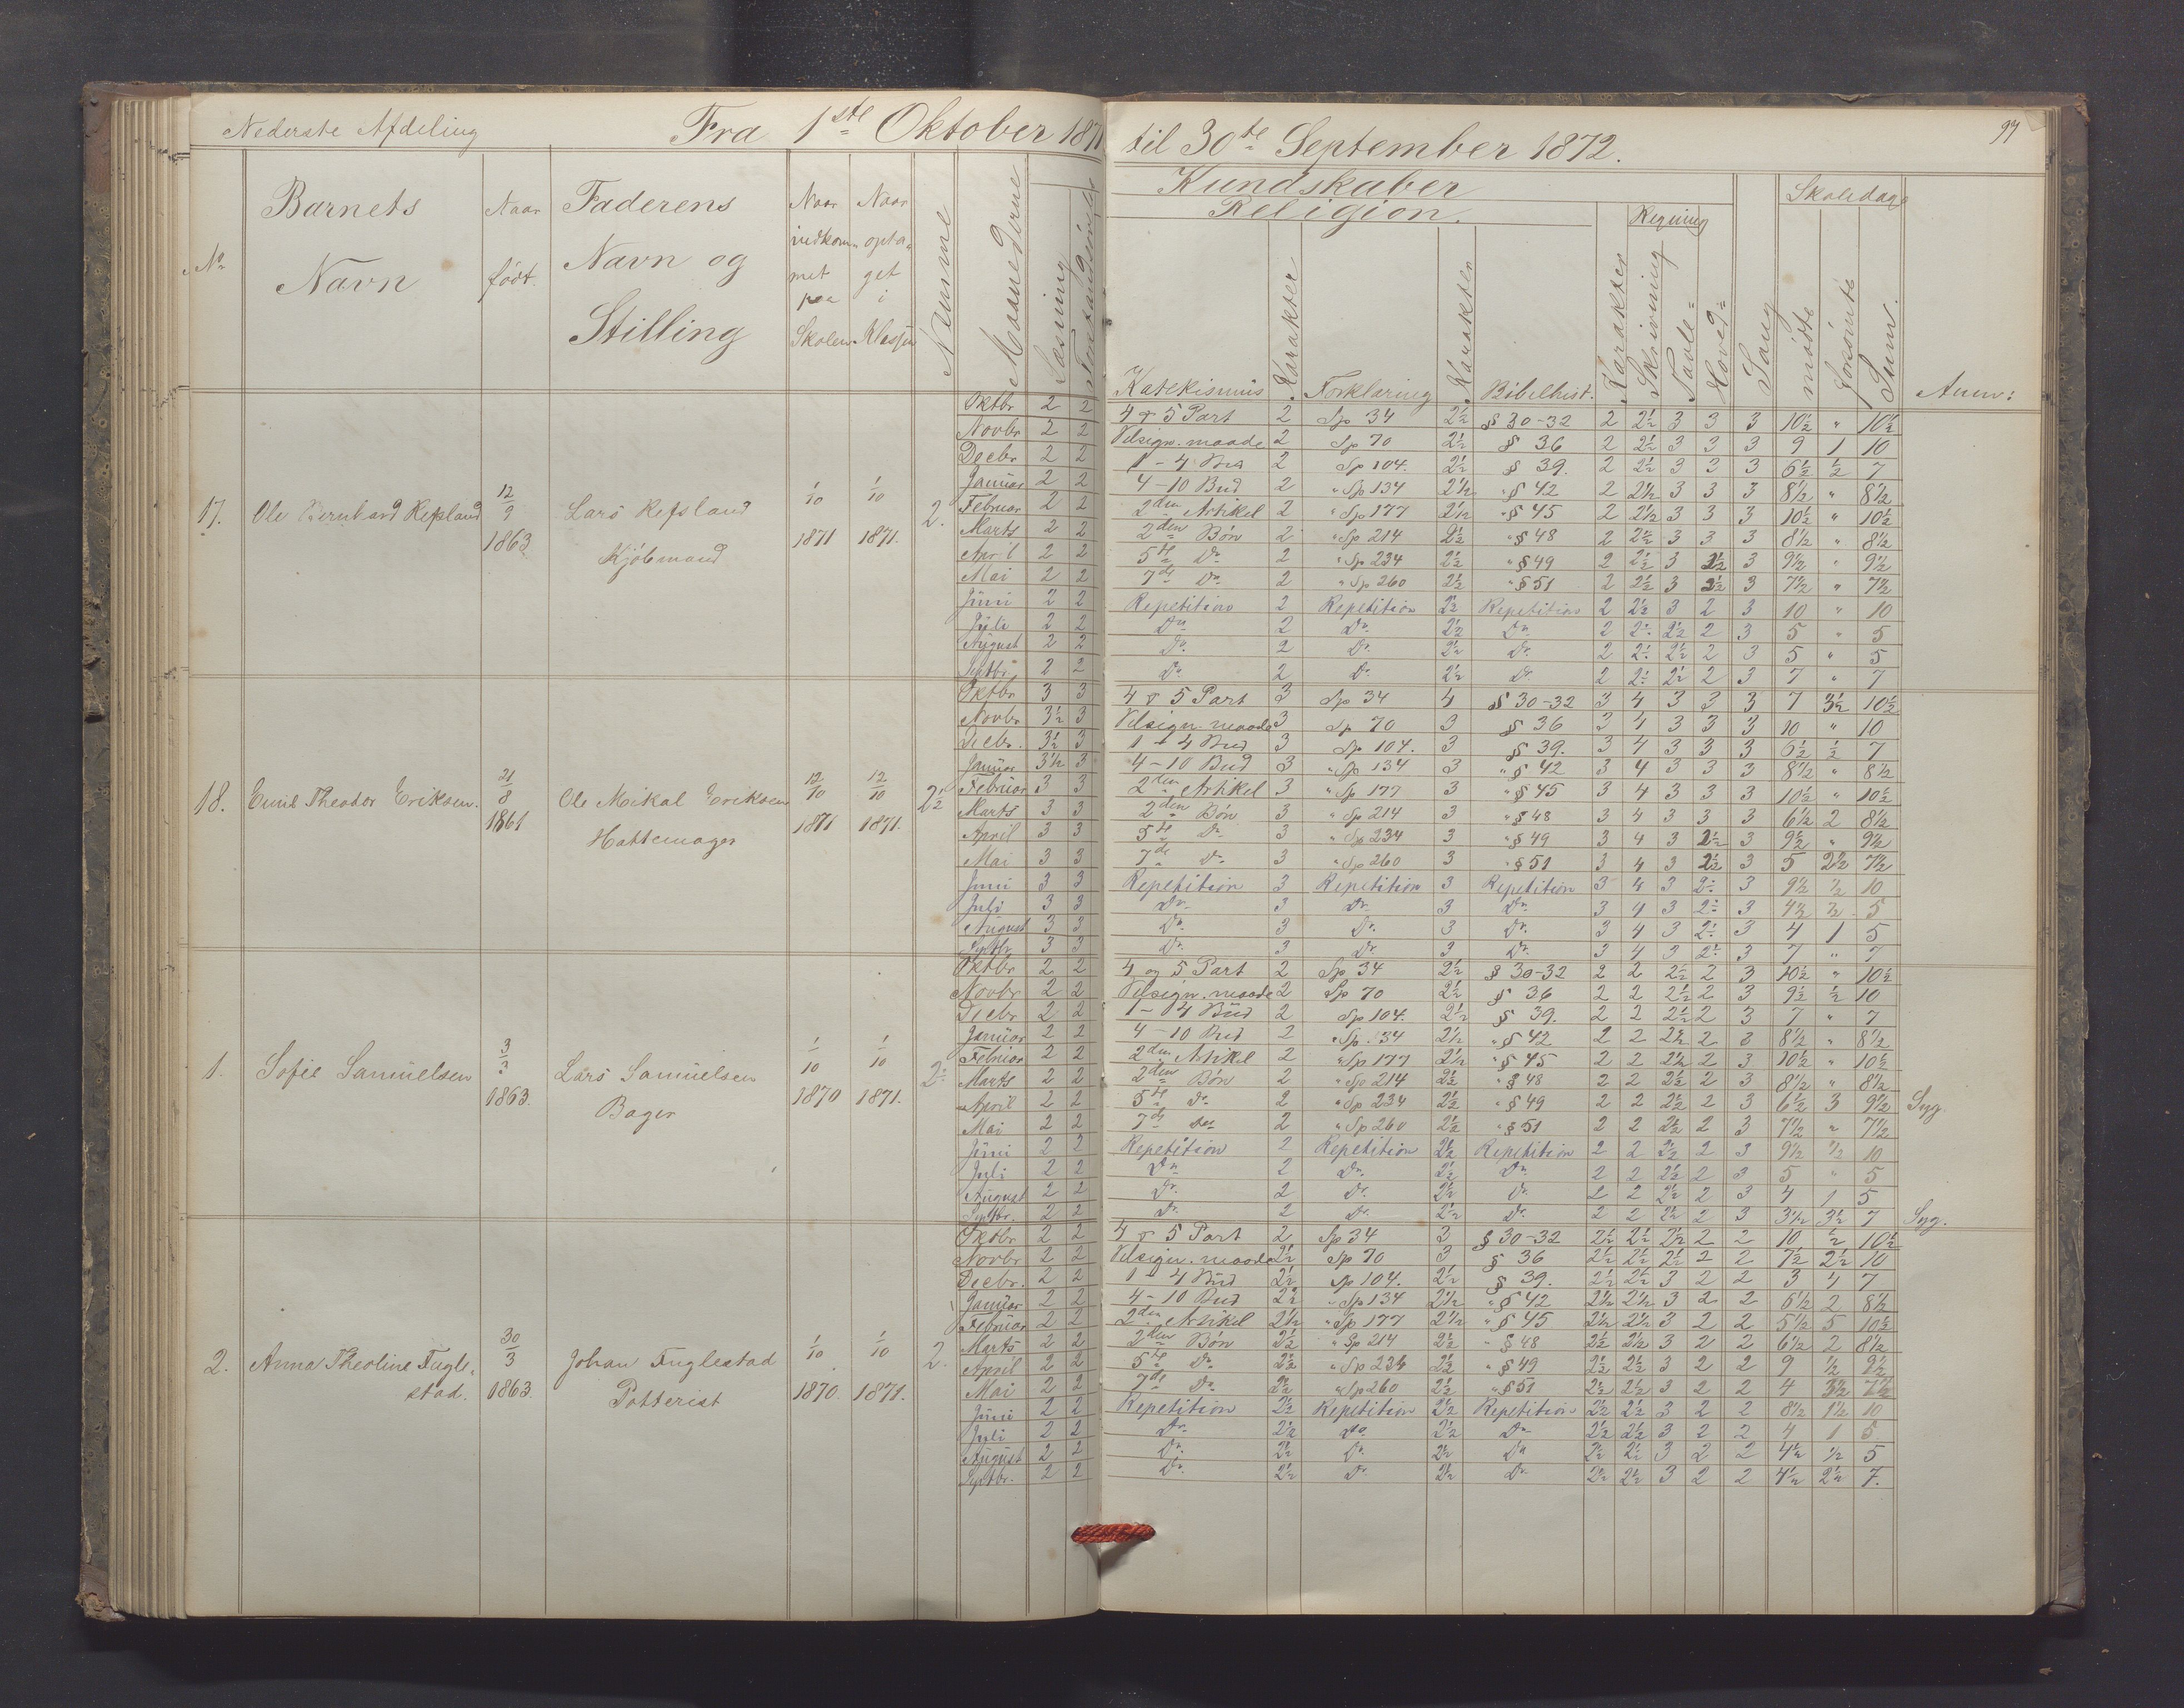 Nederste Afdeling Fra 1ste Oktober 1871 til 30te September 1872. 97
Kundskaber Skoledage
Religion. Regning
No Barnets Navn Naar født. Faderens Navn og Stilling Naar indkommet paa Skolen Naar optaget i Klassen Nævne Maanederne Læsning Forstandsøvelse Katekismus Karakter Forklaring Karakter Bibelhist. Karakter Skrivning Tavle= Hoved= Sang mødte forsømte Sum. Anm:
17. Ole Bernhard Refsland 12/9 1863 Lars Refsland Kjøbmand 1/10 1871 1/10 1871. 2.
Oktbr 2 2 4 & 5 Part 2 Sp 34 2½ § 30-32 2 2½ 3 3 3 10½ " 10½
Novbr 2 2 Velsign. maade 2 Sp 70 2½ § 36 2 2½ 3 3 3 9 1 10
Decbr 2 2 1-4 Bud 2 Sp 104. 2½ § 39. 2 2½ 3 3 3 6½ ½ 7
Januar 2 2 4-10 Bud 2 " Sp 134 2½ " § 42 2 2½ 3 3 3 8½ " 8½
Februar 2 2 2den Artikel 2 " Sp 177 2½ " § 45 2 2½ 3 3 3 10½ " 10½
Marts 2 2 2den Bøn 2 " Sp 214 2½ " § 48 2 2½ 3 3 3 8½ " 8½
April 2 2 5te Do 2 " Sp 234 2½ " § 49 2 2½ 3 2½ 3 9½ " 9½
Mai 2 2 7de Do 2 " Sp 260 2½ " § 51 2 2½ 3 2½ 3 7½ " 7½
Juni 2 2 Repetition 2 Repetition 2½ Repetition 2 2½ 3 2 3 10 " 10
Juli 2 2 Do 2 Do 2½ Do 2 2÷ 2½ 2 3 5 " 5
August 2 2 Do 2 Do 2½ Do 2 2÷ 2½ 2 3 5 " 5
Septbr 2 2 Do 2 Do 2½ Do 2 2÷ 2½ 2 3 7 " 7
18. Emil Theodor Eriksen. 21/8 1861 Ole Mikal Eriksen Hattemager 12/10 1871 12/10 1871. 2½
Oktbr 3 3 4 & 5 Part 3 Sp 34 4 § 30-32 3 4 3 3 3 7 3½ 10½
Novbr 3½ 3 Velsign. maade 3 Sp 70 3 § 36 3 4 3 3 3 10 " 10
Decbr. 3½ 3 1-4 Bud 3 Sp 104. 3 § 39. 3 4 3 3 3 6½ ½ 7
Januar 3½ 3 4-10 Bud 3 " Sp 134 3 " § 42 3 4 3 3 3 8½ " 8½
Februar 3 3 2den Artikel 3 " Sp 177 3 " § 45 3 4 3 3 3 10½ " 10½
Marts 3 3 2den Bøn 3 " Sp 214 3 " § 48 3 4 3 3 3 6½ 2 8½
April 3 3 5te Do 3 " Sp 234 3 " § 49 3 4 3 2½ 3 9½ " 9½
Mai 3 3 7de Do 3 " Sp 260 3 " § 51 3 4 3 2½ 3 5 2½ 7½
Juni 3 3 Repetition 3 Repetition 3 Repetition 3 4 3 2÷ 3 9½ ½ 10
Juli 3 3 Do 3 Do 3 Do 3 4 3 2÷ 3 4½ ½ 5
August 3 3 Do 3 Do 3 Do 3 4 3 2÷ 3 4 1 5
Septbr 3 3 Do 3 Do 3 Do 3 4 3 2÷ 3 7 " 7
1. Sofie Samuelsen 3/3 1863. Lars Samuelsen Bager 1/10 1870 1/10 1871. 2÷
Oktbr 2 2 4 og 5 Part 2 Sp 34 2½ § 30-32 2 2 2½ 2 3 10½ " 10½
Novbr 2 2 Velsign. maade 2 Sp 70 2½ § 36 2 2 2½ 2 3 9½ ½ 10
Decbr 2 2 1-4 Bud 2 Sp 104. 2½ § 39. 2 2 2½ 2 3 7 " 7
Januar 2 2 4-10 Bud 2 " Sp 134 2½ " § 42 2 2 2½ 2 3 8½ " 8½
Februar 2 2 2den Artikel 2 " Sp 177 2½ " § 45 2 2 2½ 2 3 10½ " 10½
Marts 2 2 2den Bøn 2 " Sp 214 2½ " § 48 2 2 2½ 2 3 8½ " 8½
April 2 2 5te Do 2 " Sp 234 2½ " § 49 2 2 2½ 2 3 6½ 3 9½ Syg.
Mai 2 2 7de Do 2 " Sp 260 2½ " § 51 2 2 2½ 2 3 7½ " 7½
Juni 2 2 Repetition 2 Repetition 2½ Repetition 2 2 2½ 2 3 9½ ½ 10
Juli 2 2 Do 2 Do 2½ Do 2 2 2½ 2 3 5 " 5
August 2 2 Do 2 Do 2½ Do 2 2 2½ 2 3 4 1 5
Septbr. 2 2 Do 2 Do 2½ Do 2 2 2½ 2 3 3½ 3½ 7 Syg.
2. Anna Theoline Fuglestad. 30/3 1863. Johan Fuglestad Potterist 1/10 1870. 1/10 1871. 2.
Oktbr 2 2 4 & 5 Part 2 Sp 34 3 § 30-32 2½ 2½ 2½ 2 2 10 ½ 10½
Novbr 2 2 Velsign. maade 2½ Sp 70 3 § 36 2½ 2½ 2½ 2 2 7½ 2½ 10
Decbr. 2 2 1-4 Bud 2½ Sp 104. 2½ § 39. 2½ 2½ 3 2 2 3 4 7
Januar 2 2 4-10 Bud 2½ " Sp 134 2½ " § 42 2½ 2½ 3 2 2 6½ 2 8½
Februar 2 2 2den Artikel 2½ " Sp 177 2½ " § 45 2½ 2½ 3 2 2 5½ 5 10½
Marts 2 2 2den Bøn 2½ " Sp 214 2½ " § 48 2½ 2½ 3 2 2 6½ 2 8½
April 2 2 5te Do 2½ " Sp 234 2½ " § 49 2½ 2½ 3 2 2 9 ½ 9½
Mai 2 2 7de Do 2½ " Sp 260 2½ " § 51 2½ 2½ 3 2 2 4 3½ 7½
Juni 2 2 Repetition 2½ Repetition 2½ Repetition 2½ 2½ 3 2 2 8½ 1½ 10
Juli 2 2 Do 2½ Do 2½ Do 2½ 2½ 3 2 2 4 1 5
August 2 2 Do 2½ Do 2½ Do 2½ 2½ 3 2 2 4½ ½ 5
Septbr. 2 2 Do 2½ Do 2½ Do 2½ 2½ 3 2 2 4½ 2½ 7.